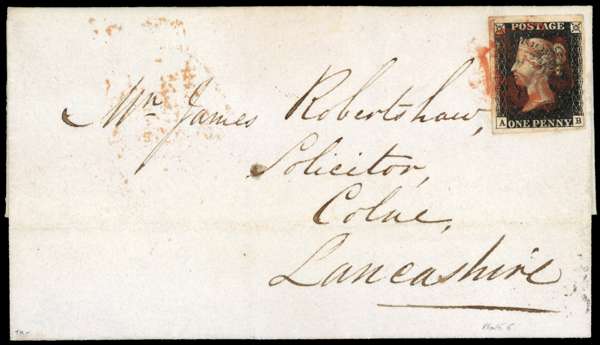 POSTAGE
A ONE PENNY B
Mr. James Robertshaw,
Solicitor,
Colne,
Lancashire
Plate 6